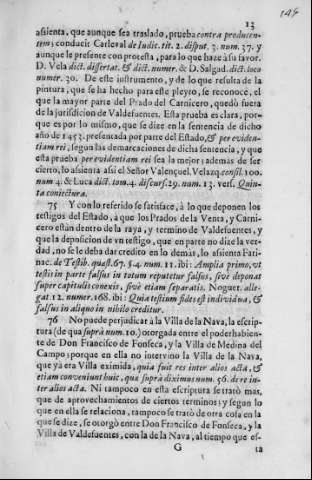 145
13
assienta, que aunque sea traslado, prueba contra producen-
tem; conducit Carleval de Iudic. tit. 2. disput. 3. num. 37. y
aunque le presente con protesta, para lo que haze à su favor.
D. Vela dict. dissertat. & dict. numer. & D. Salgad. dict. loco
numer. 30. De este instrumento, y de lo que resulta de la
pintura, que se ha hecho para este pleyto, se reconoce, el
que la mayor parte del Prado del Carnicero, quedò fuera
de la jurisdicion de Valdefuentes. Esta prueba es clara, por-
que es por lo mismo, que se dize en la sentencia de dicho
año de 1453. presentada por parte del Estado, & per eviden-
tiam rei, segun las demarcaciones de dicha sentencia, y que
esta prueba per evidentiam rei sea la mejor; ademàs de ser
cierto, lo assienta assi el Señor Valençuel. Velazq. consil. 100.
num. 4. & Luca dict. tom. 4. discurs. 29. num. 13. vers. Quin-
ta coniectura.
75 Y con lo referido se satisface, à lo que deponen los
testigos del Estado, à que los Prados de la Venta, y Carni-
cero estàn dentro de la raya, y termino de Valdefuentes, y
que la deposicion de vn testigo, que en parte no dize la ver-
dad, no se le deba dar credito en lo demàs, lo assienta Fati-
nac. de Testib. quæst. 67. §. 4. num. 11. ibi: Amplia primo, vt
testis in parte falsus in totum reputetur falsus, sivè deponat
super capitulis conexis, sivè etiam separatis. Noguer. alle-
gat. 12. numer. 168. ibi: Quia testium fides est individua, &
falsus in aliquo in nihilo creditur.
76 No puede perjudicar à la Villa de la Nava, la escrip-
tura (de qua suprà num. 10.) otorgada entre el poderhabien-
te de Don Francisco de Fonseca, y la Villa de Medina del
Campo; porque en ella no intervino la Villa de la Nava,
que yà era Villa eximida, quia fuit res inter alios acta, &
etiam conveniunt huic, que suprà diximus num. 56. de re in-
ter alios acta. Ni tampoco en esta escriptura se tratò mas,
que de aprovechamientos de ciertos terminos; y segun lo
que en ella se relaciona, tampoco se tratò de otra cosa en la
que se dize, se otorgò entre Don Francisco de Fonseca, y la
Villa de Valdefuentes, con la de la Nava, al tiempo que es-
G ta